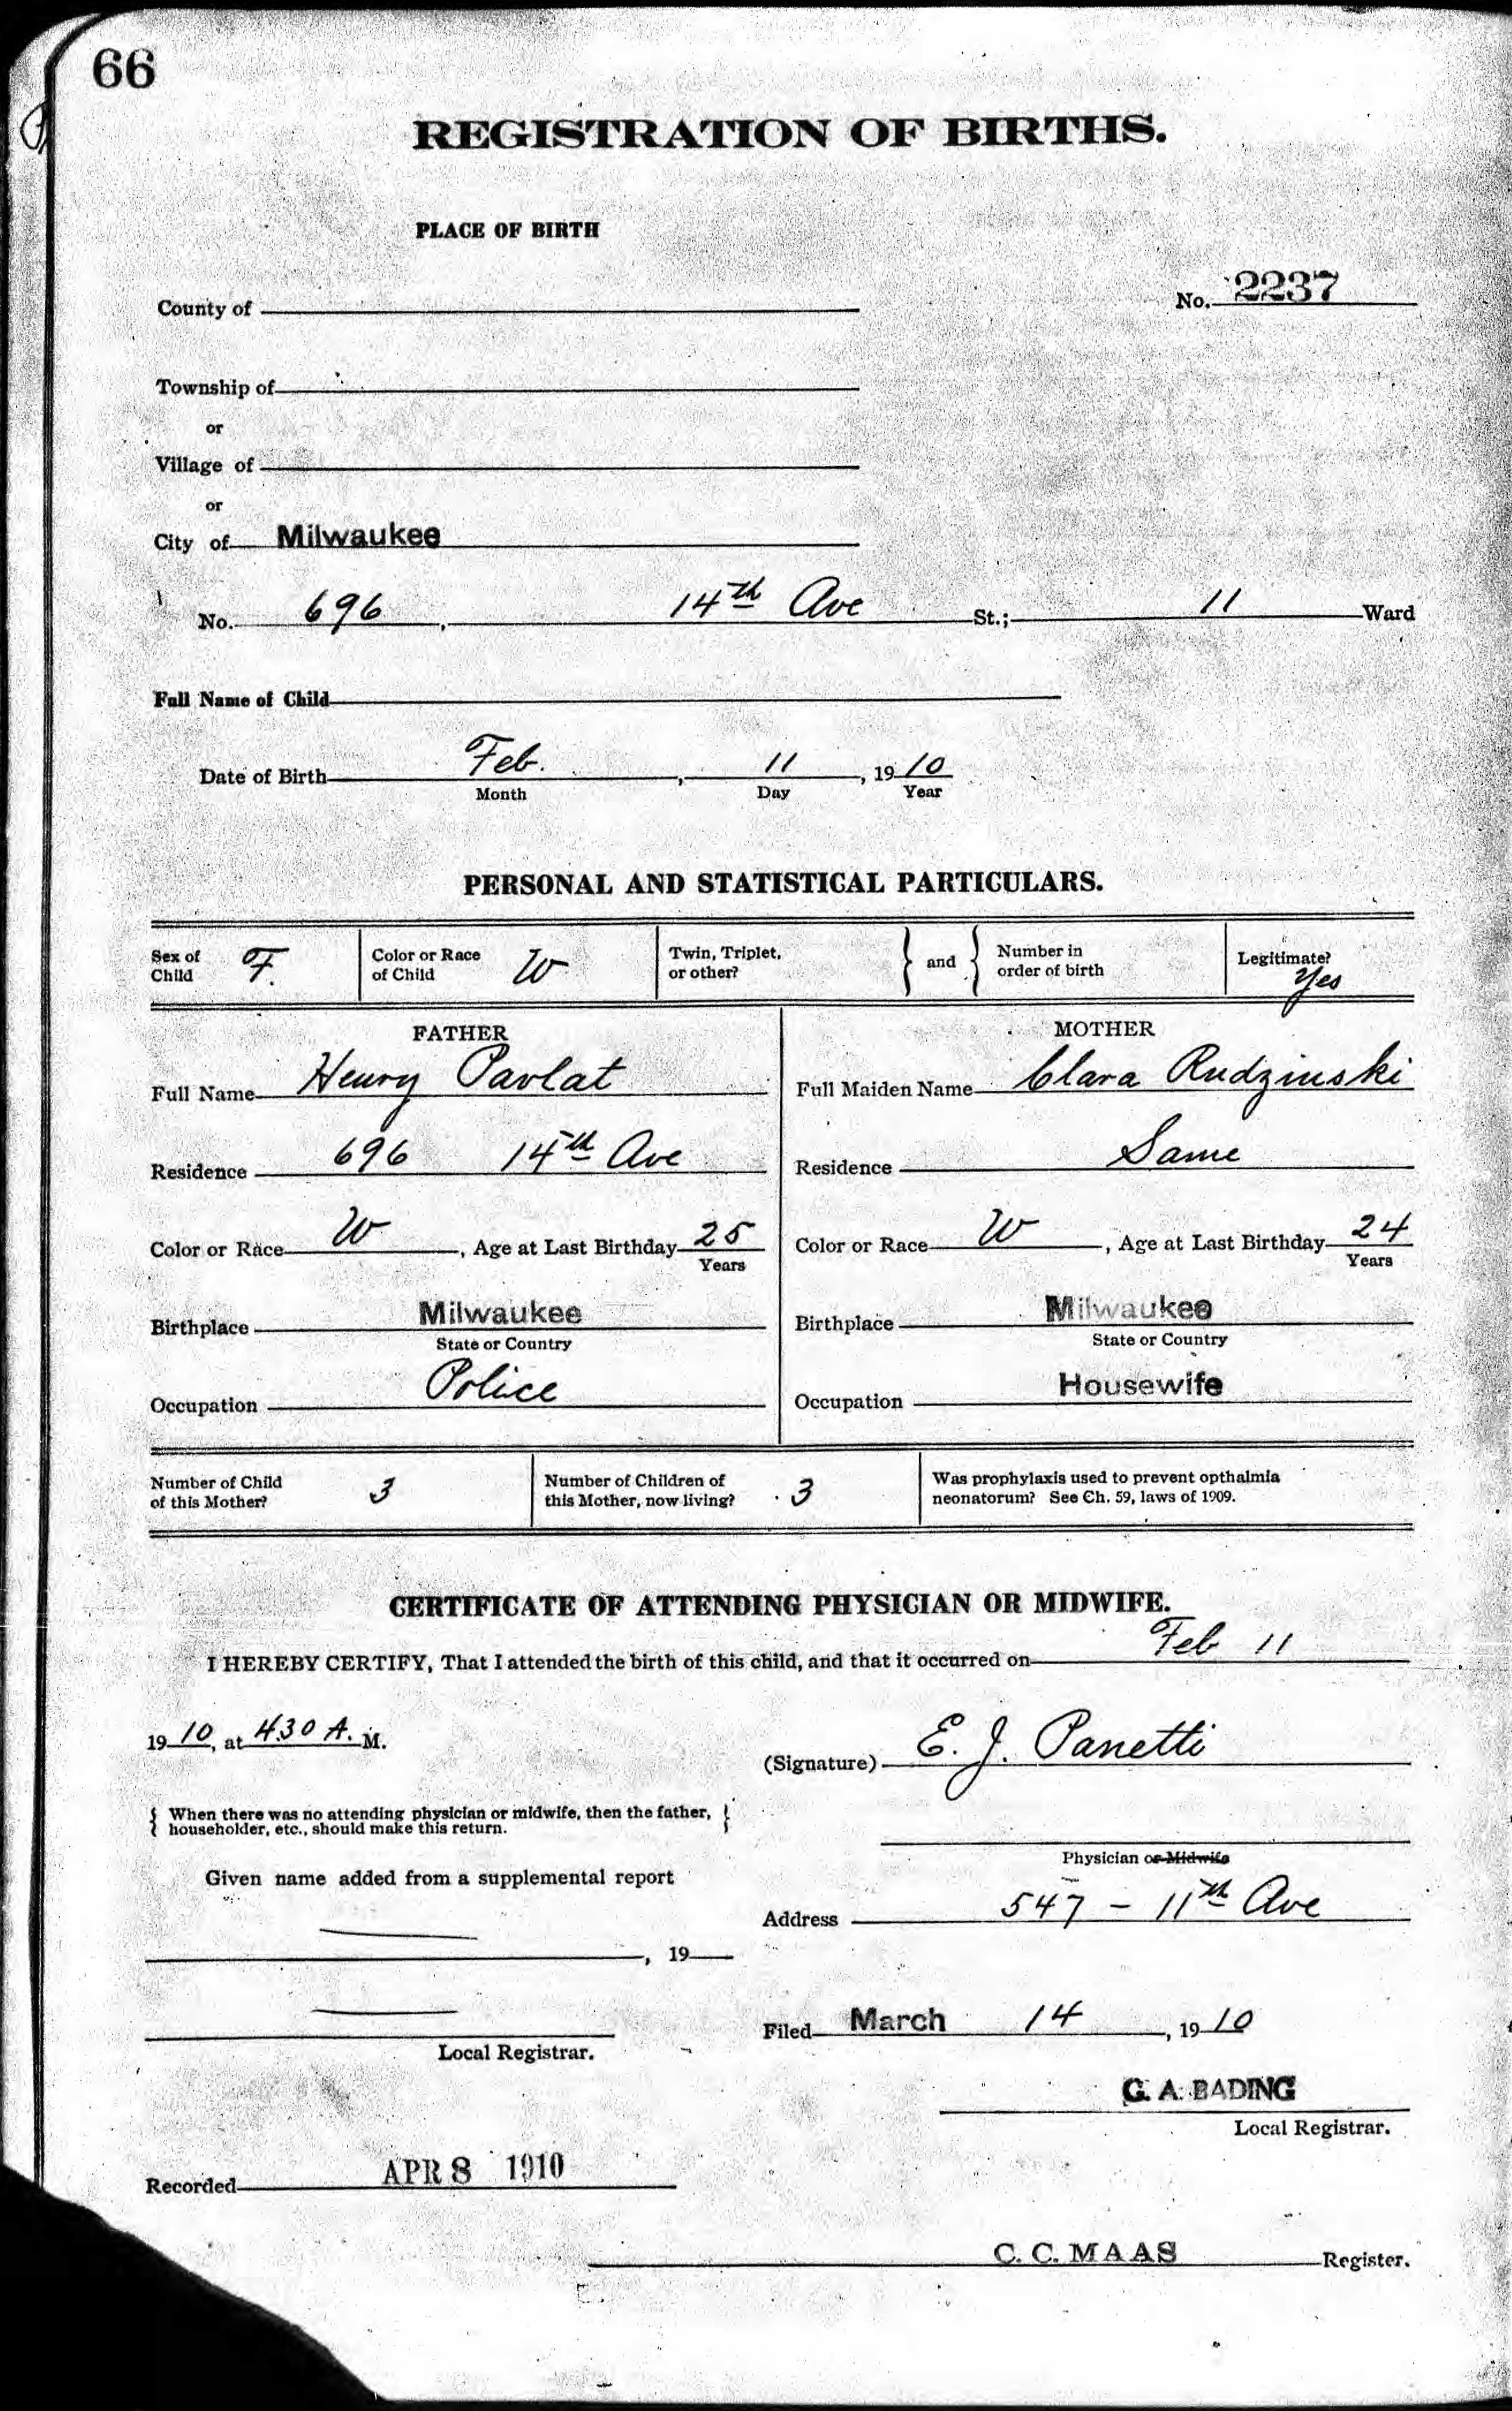 66
REGISTRATION OF BIRTHS.
PLACE OF BIRTH
County of
No. 2237
Township of
or
Village of
or
City of Milwaukee
No. 696, 14th Ave St.; 11 Ward
Full Name of Child
Date of Birth Feb. , 11 , 1910
Month Day Year
PERSONAL AND STATISTICAL PARTICULARS.
Sex of Child F. Color or Race of Child W Twin, Triplet, or other? } and { Number in order of birth Legitimate? Yes
FATHER MOTHER
Full Name Henry Pavlat Full Maiden Name Clara Rudzinski
Residence 696 14th Ave Residence Same
Color or Race W, Age at Last Birthday 25 Color or Race W, Age at Last Birthday 24
Years Years
Birthplace Milwaukee Birthplace Milwaukee
State or Country State or Country
Occupation Police Occupation Housewife
Number of Child of this Mother? 3 Number of Children of this Mother, now living? 3 Was prophylaxis used to prevent opthalmia neonatorum? See Ch. 59, laws of 1909.
CERTIFICATE OF ATTENDING PHYSICIAN OR MIDWIFE.
I HEREBY CERTIFY, That I attended the birth of this child, and that it occurred on Feb 11
1910, at 4.30 A. M.
(Signature) E. J. Panetti
{ When there was no attending physician or midwife, then the father, householder, etc., should make this return. }
Physician or Midwife
Given name added from a supplemental report
Address 547 - 11th Ave
, 19
Filed March 14, 1910
Local Registrar.
G. A. BADING
Local Registrar.
Recorded APR 8 1910
C. C. MAAS Register.